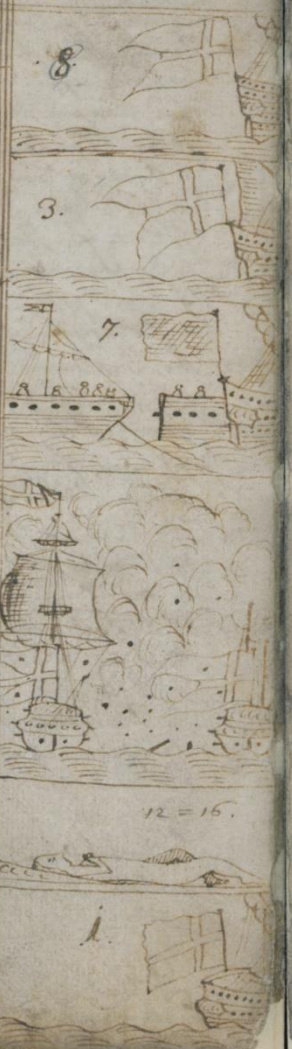 8.
3.
7.
12 = 16.
1.